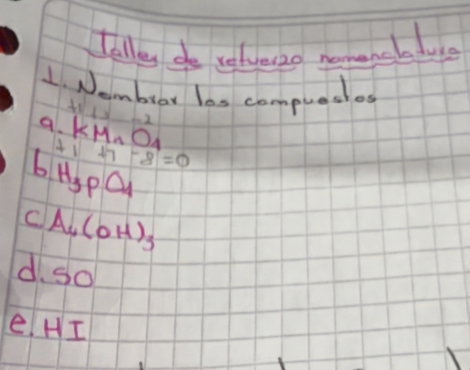 Taller de refuerzo nomenclatura
1. Nombrar los compuestos
a. KMnO4
+1 +7 -8 = 0
b. H3PO4
c Au(OH)3
d. SO
e. HI